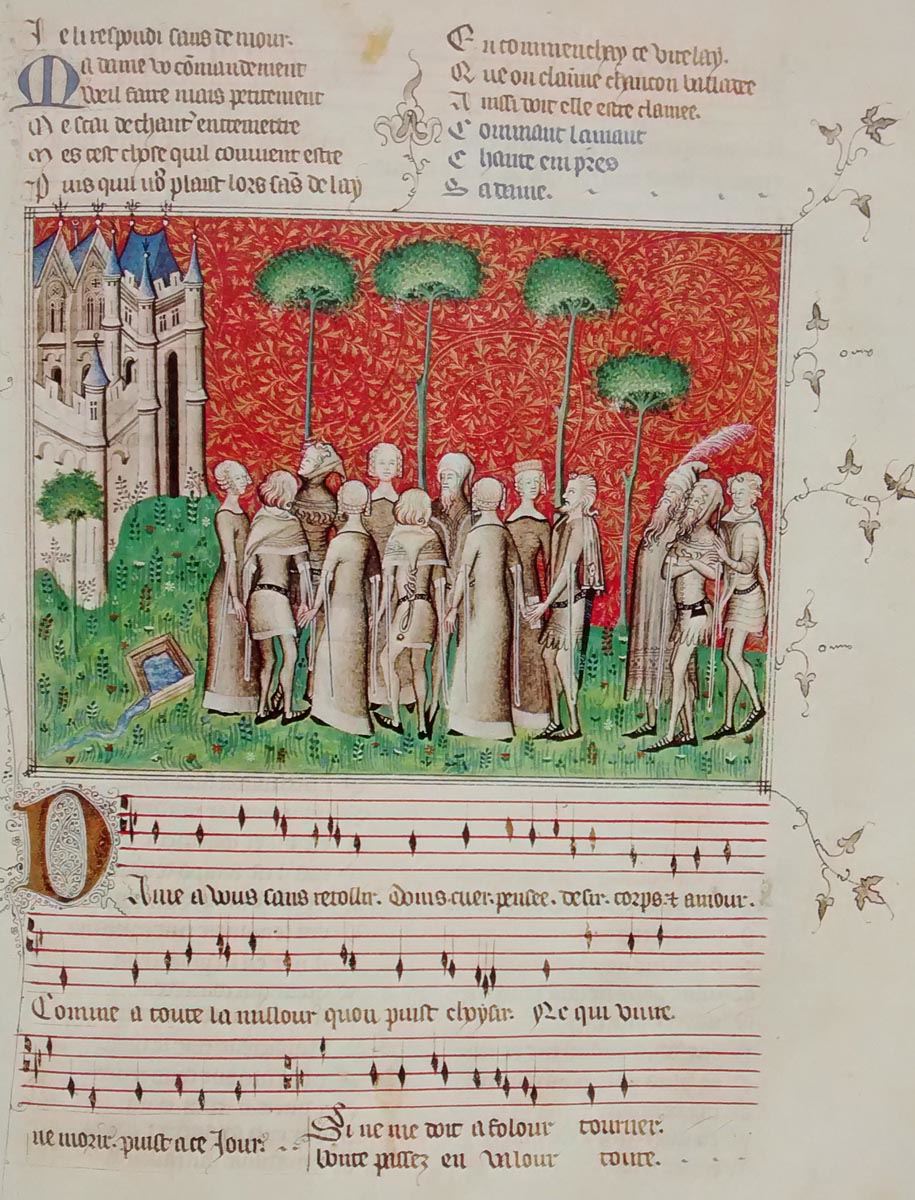 Je li respondi sans demour.
Ma dame vo cōmandement
Vueil faire mais petitement
Me scai de chant' entremettre
Mes cest chose quil couuient estre
Puis quil vo9 plaist lors sās delay
En commenchay ce virelay.
Que on claime chancon balladee
Ainssi doit elle estre clamee.
Commant lamant
chante empres
Sa dame.
Dame a vous sans retollir. Doins. cuer. pensee. desir. corps. et amour.
Comme a toute la millour quon puist choysir. Ne qui viure.
ne morir. puist a ce Jour.
Si ne me doit a folour tourner.
bonte passez en valour toute.